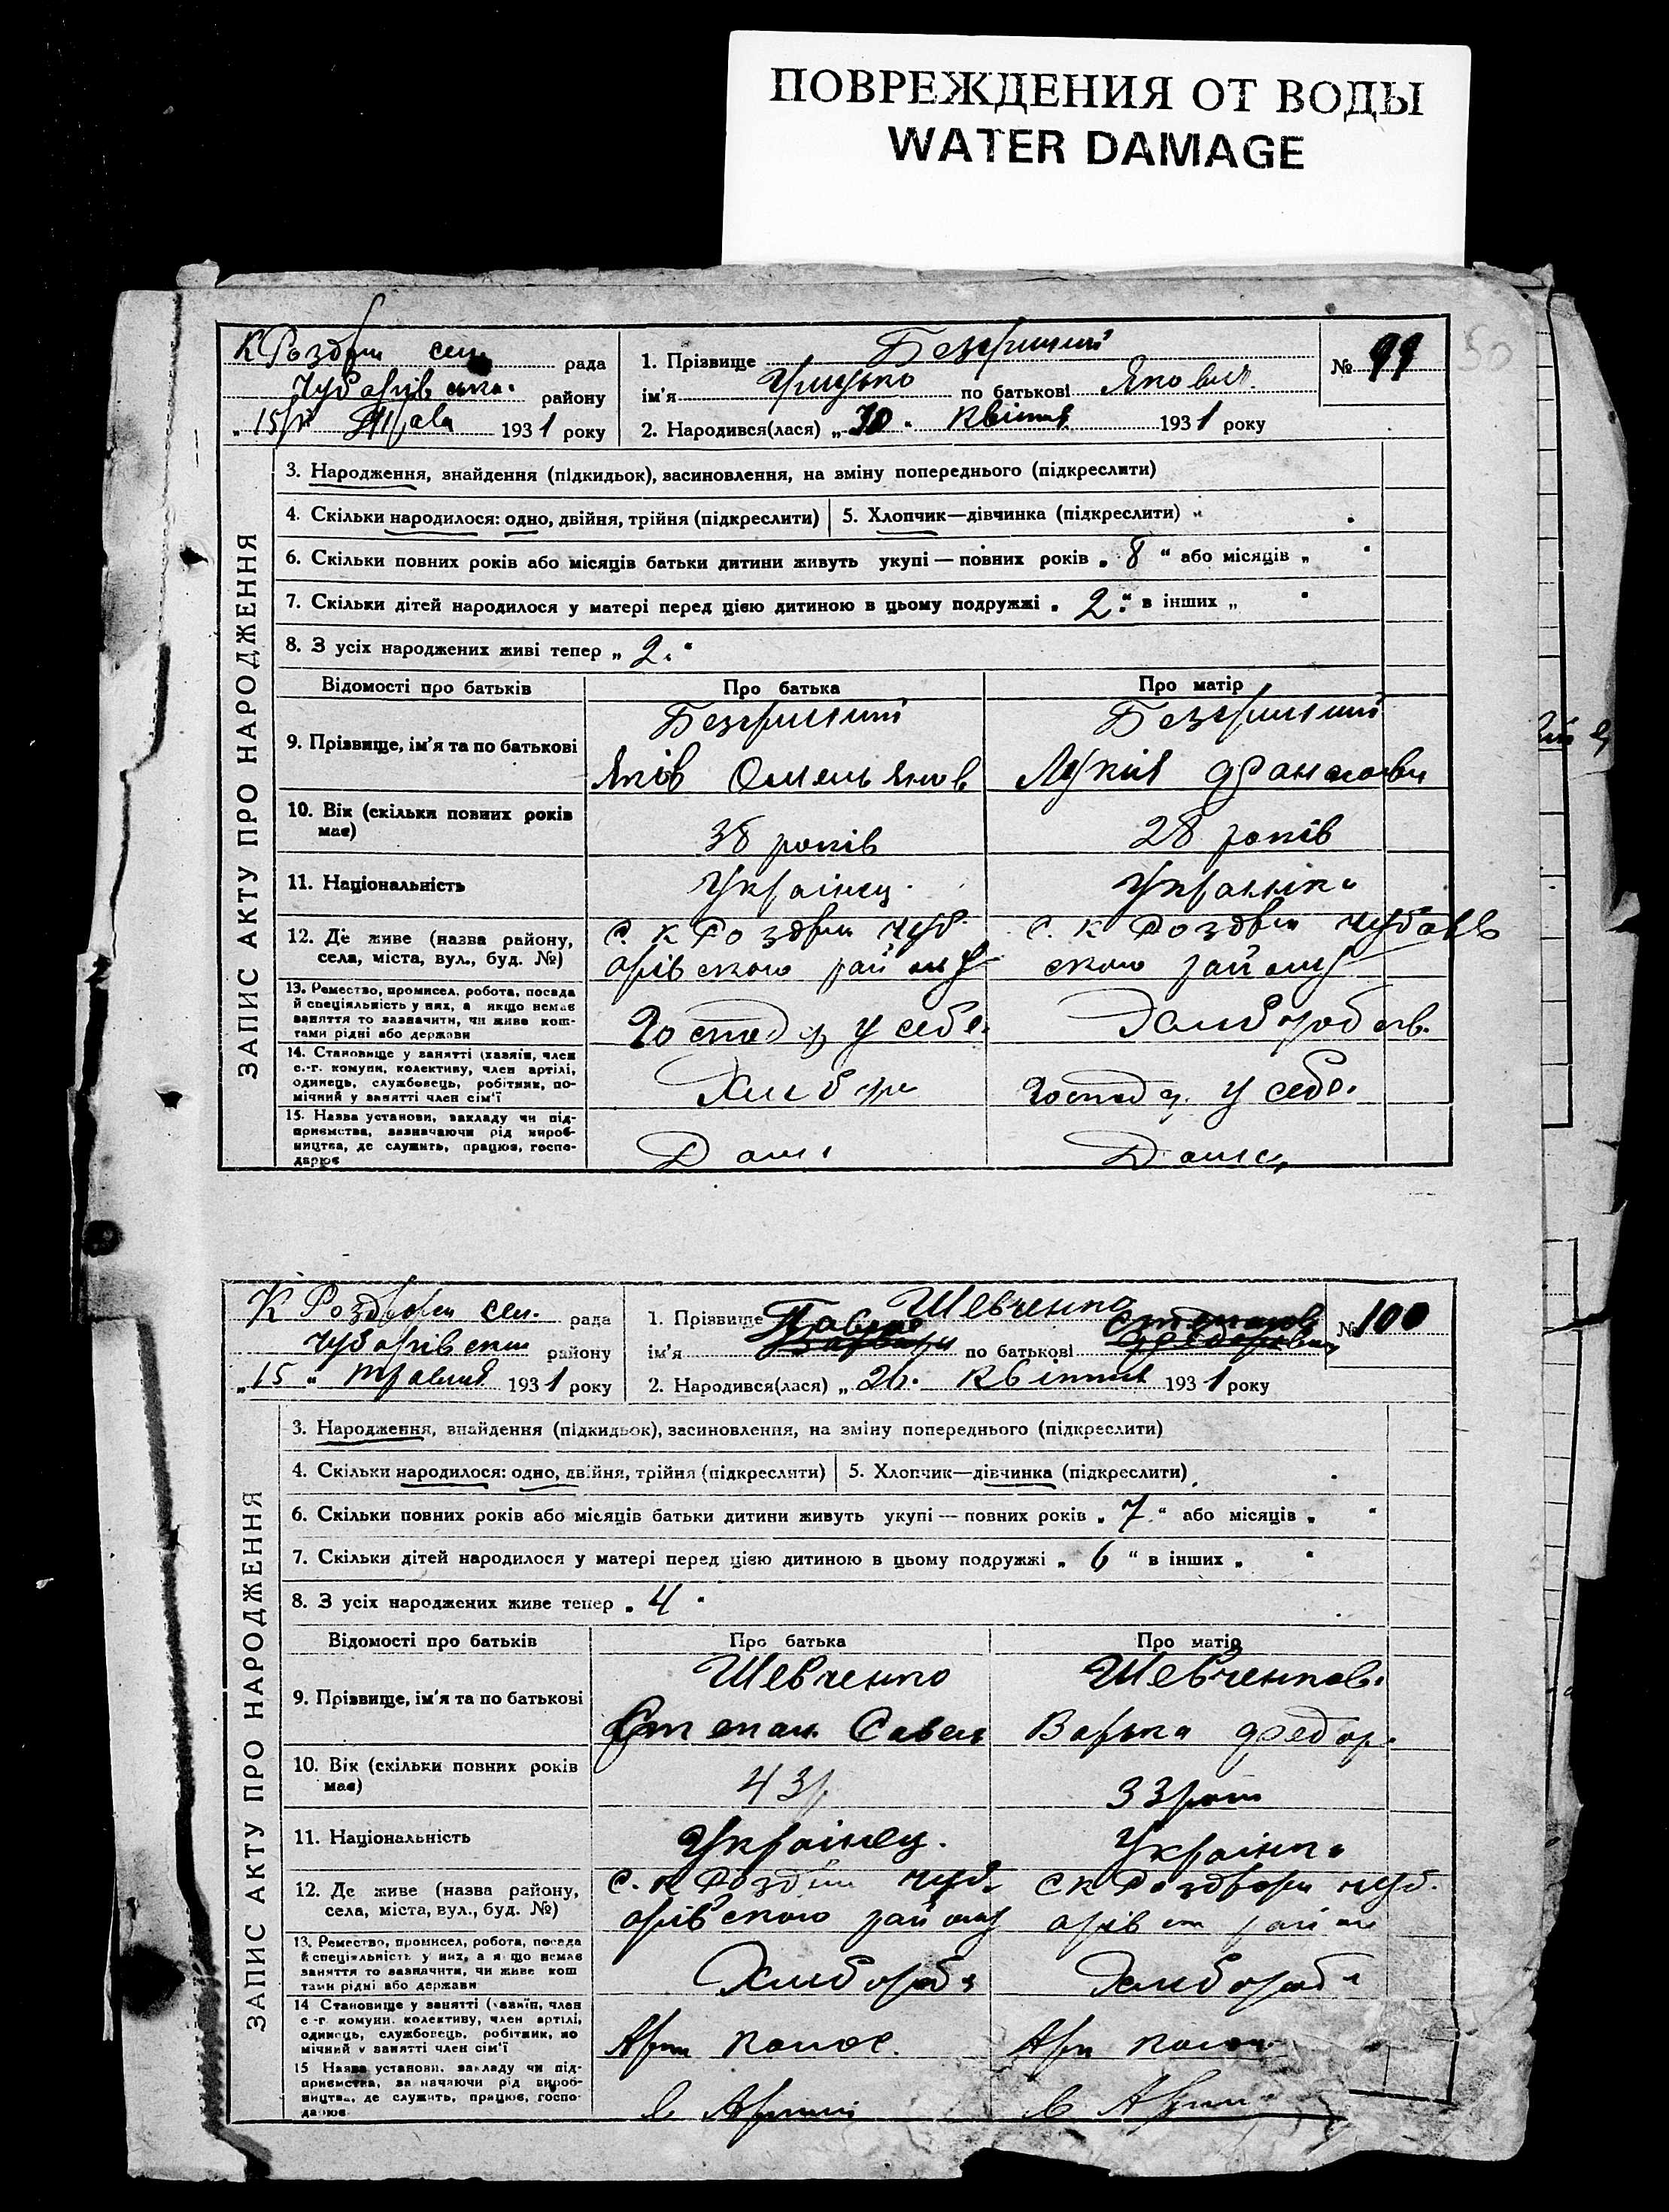 ПОВРЕЖДЕНИЯ ОТ ВОДЫ
WATER DAMAGE
50
К Роздори сел. рада
Чубарівська району
"15" 193 1 року
1. Прізвище
ім'я по батькові Яковил.
2. Народився(лася) " 30 " Квітня 193 1 року
№ 99
ЗАПИС АКТУ ПРО НАРОДЖЕННЯ
3. Народження, знайдення (підкидьок), засиновлення, на зміну попереднього (підкреслити)
4. Скільки народилося: одно, двійня, трійня (підкреслити)
5. Хлопчик—дівчинка (підкреслити)
6. Скільки повних років або місяців батьки дитини живуть укупі — повних років „ 8 “ або місяців „ “
7. Скільки дітей народилося у матері перед цією дитиною в цьому подружжі „ 2 “ в інших „ “
8. З усіх народжених живі тепер „ 2 “
Відомості про батьків Про батька Про матір
9. Прізвище, ім'я та по батькові
Яків Омельянов
10. Вік (скільки повних років має)
38 років 28 років
11. Національність Українец Українка
12. Де живе (назва району, села, міста, вул., буд. №)
с. К Роздори Чуб с. К Роздори Чубарів
арівского району ского району
13. Ремество, промисел, робота, посада
й спеціяльність у них, а якщо немає
заняття то зазначити, чи живе кош-
тами рідні або держави
Господ у себе Хлибороб
14. Становище у занятті (хазяїн, член
с.-г. комуни, колективу, член артілі,
одинець, службовець, робітник, по-
мічний у занятті член сім'ї
Хлибор Господ у себе
15. Назва установи, закладу чи під-
приємства, зазначаючи рід вироб-
ництва, де служить, працює, госпо-
дарює
Дома Дома
К Роздори сел. рада
Чубарівски району
„15“ травня 193 1 року
1. Прізвище Шевченко
ім'я Павло Варвара по батькові Степанов Федоровна
2. Народився(лася) „ 26. Квітня 193 1 року
№ 100
ЗАПИС АКТУ ПРО НАРОДЖЕННЯ
3. Народження, знайдення (підкидьок), засиновлення, на зміну попереднього (підкреслити)
4. Скільки народилося: одно, двійня, трійня (підкреслити)
5. Хлопчик—дівчинка (підкреслити)
6. Скільки повних років або місяців батьки дитини живуть укупі — повних років „ 7 “ або місяців „ “
7. Скільки дітей народилося у матері перед цією дитиною в цьому подружжі „ 6 “ в інших „ “
8. З усіх народжених живе тепер „ 4 “
Відомості про батьків Про батька Про матір
9. Прізвище, ім'я та по батькові
Шевченко Шевченкова
Степан Савел Варька Федор.
10. Вік (скільки повних років має)
43 р 33 рок
11. Національність Українец. Українка
12. Де живе (назва району, села, міста, вул., буд. №)
с. К Роздори Чуб. с К Роздори Чуб.
арівского району арівск район
13. Ремество, промисел, робота, посада
й спеціяльність у них, а якщо немає
заняття то зазначити, чи живе кош
тами рідні або держави
Хлибороб Хлибороб
14 Становище у занятті (хазяїн, член
с -г комуни, колективу, член артілі,
одинець, службовець, робітник, по
мічний у занятті член сім'ї
15 Назва установи, закладу чи під-
приємства, зазначаючи рід вироб-
ництва, де служить, працює, госпо-
дарює
в Артилі в Артилі